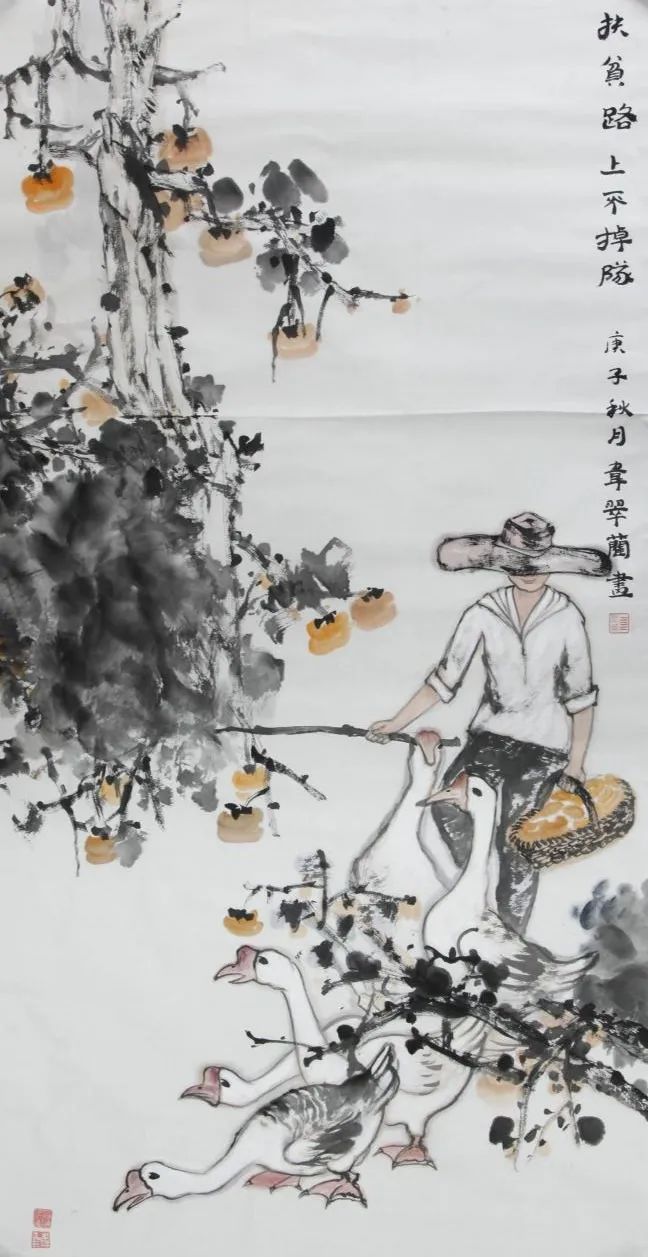 扶貧路上不掉隊 庚子秋月韋翠蘭畫